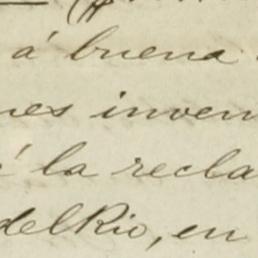 á buena
nes inven
la recla
del Rio, en